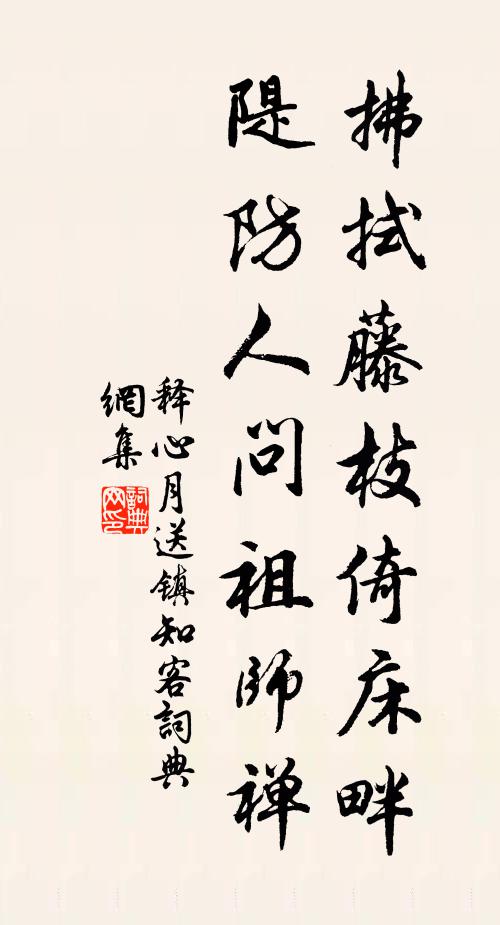 拂拭藤枝倚床畔
隄防人问祖師禅
释心月送镇知客詞典
網集
詞典
网印